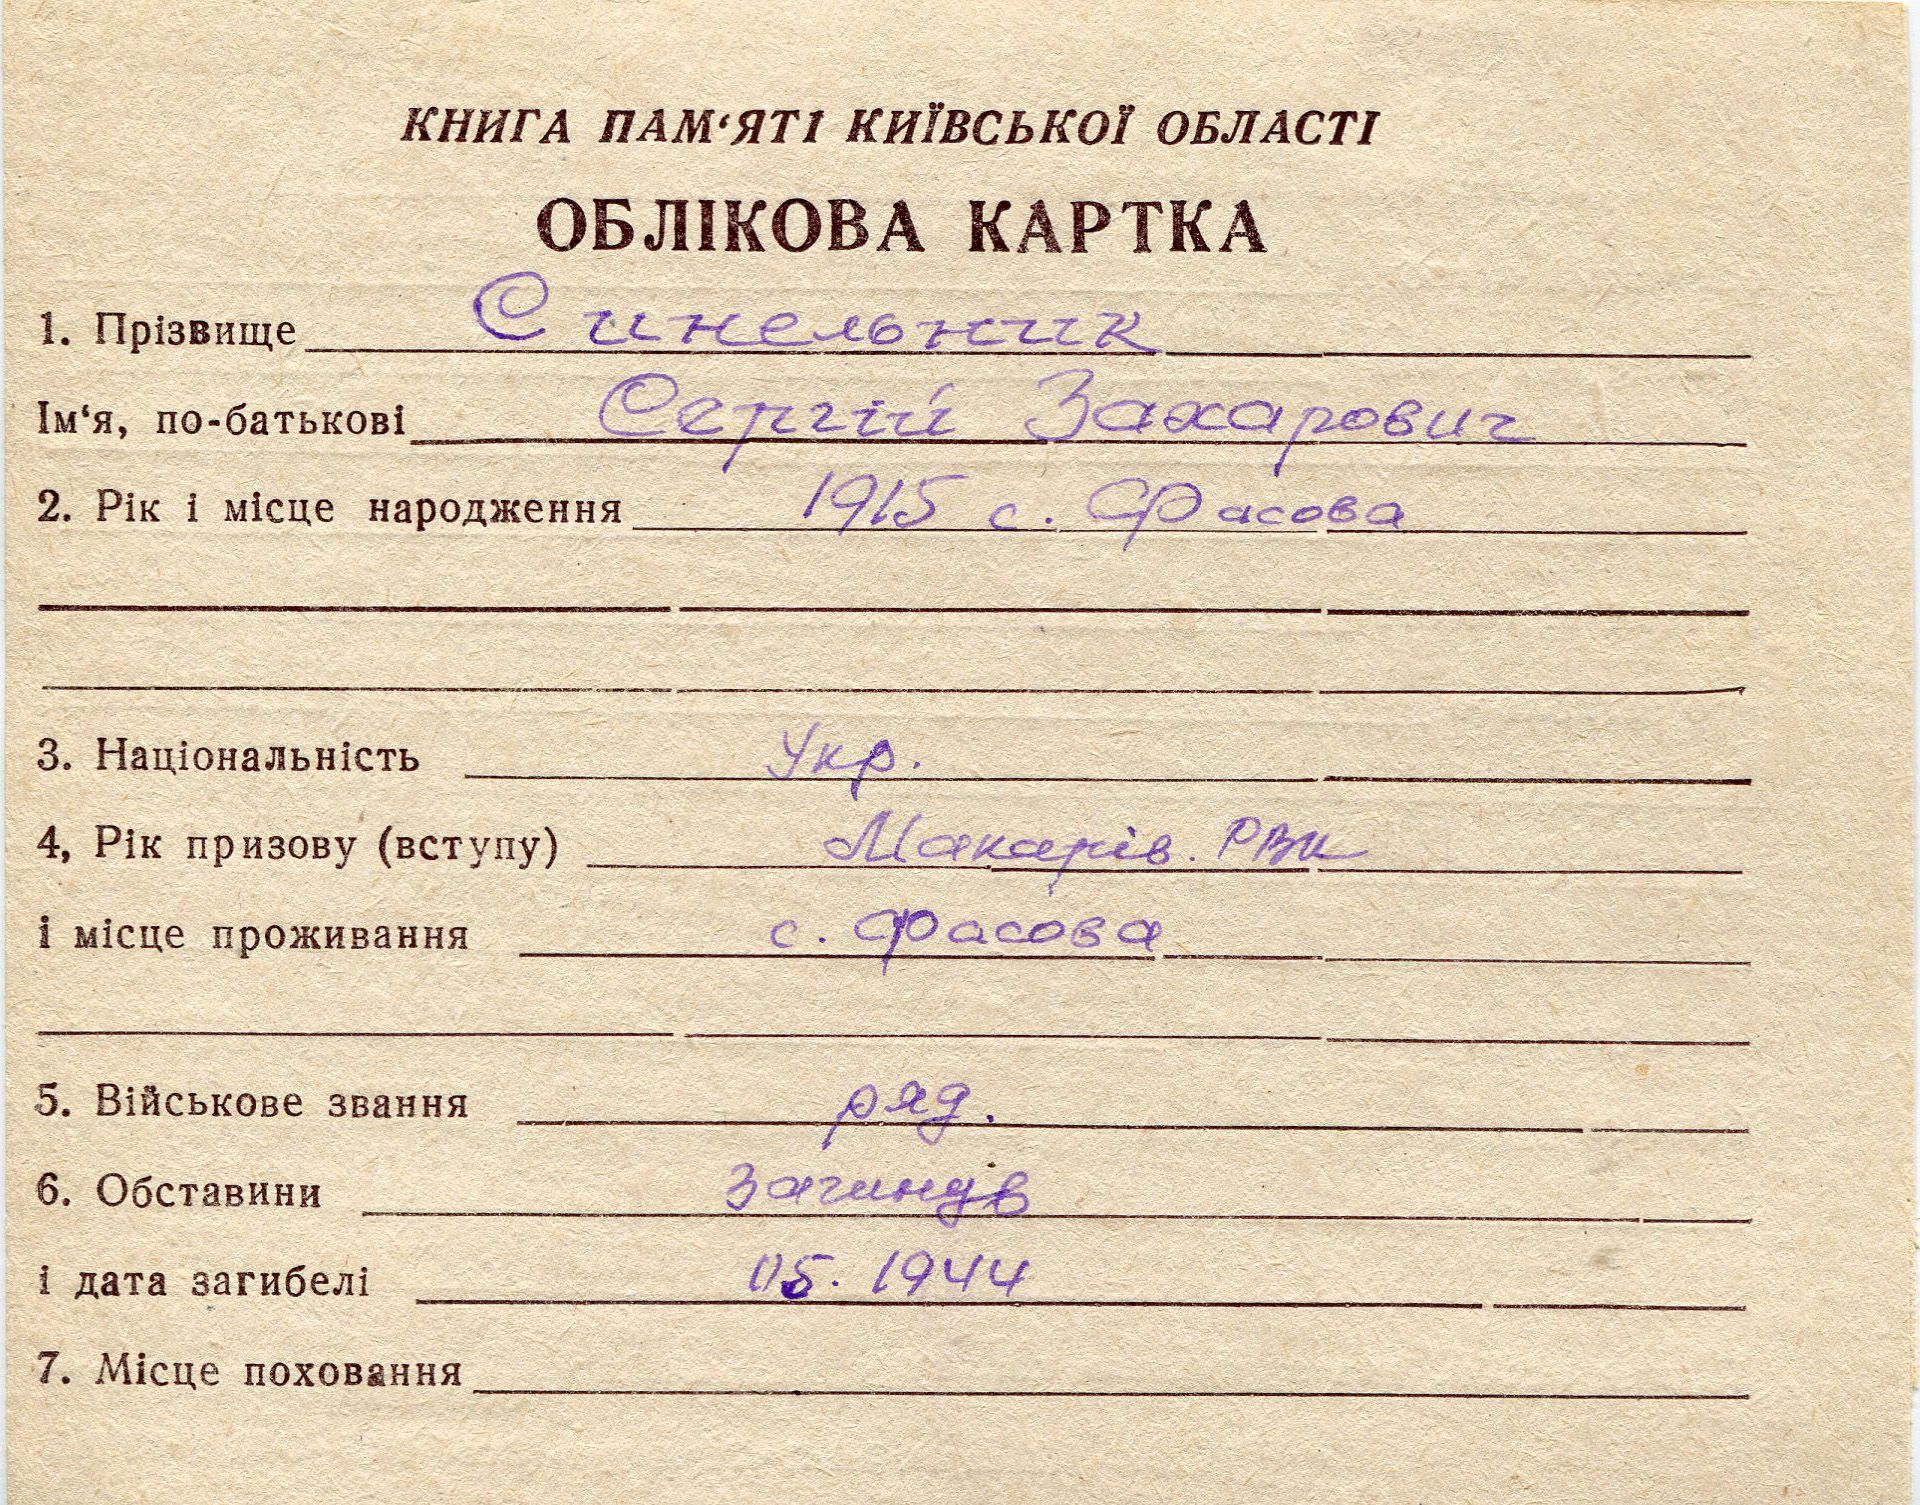 КНИГА ПАМ‘ЯТІ КИЇВСЬКОЇ ОБЛАСТІ
ОБЛІКОВА КАРТКА
1. Прізвище Синельник
Ім‘я, по-батькові Сергій Захарович
2. Рік і місце народження 1915 с. Фасова
3. Національність Укр.
4, Рік призову (вступу) Макарів. РВК
і місце проживання с. Фасова
5. Військове звання ряд.
6. Обставини загинув
і дата загибелі 05. 1944
7. Місце поховання